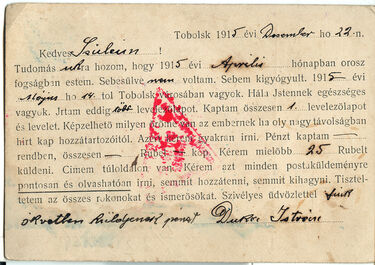 Tobolsk 1915 évi Desember ho 22-n.
Kedves Szüleim !
Tudomás utra hozom, hogy 1915 évi Április hónapban orosz
fogságban estem. Sebesülve nem voltam. Sebem kigyógyult. 1915 évi
Május ho 14 tol Tobolsk városában vagyok. Hála Jstennek egészséges
vagyok. Jrtam eddig több levelezőlapot. Kaptam összesen 1. levelezőlapot
és levelet. Képzelhető milyen öröme van az embernek ha oly nagy távolságban
hirt kap hozzátartozóitól. Azért gyakran irni. Pénzt kaptam —
rendben, összesen — Rubelt kop. Kérem mielőbb 25 Rubelt
küldeni. Cimem túloldalon van. Kérem azt minden postaküldeményre
pontosan és olvashatóan irni, semmit hozzátenni, semmit kihagyni. Tisztel-
tetem az összes rokonokat és ismerősökat. Szivélyes üdvözlettel fiuk
ökvetlen küldjenek pénzt István